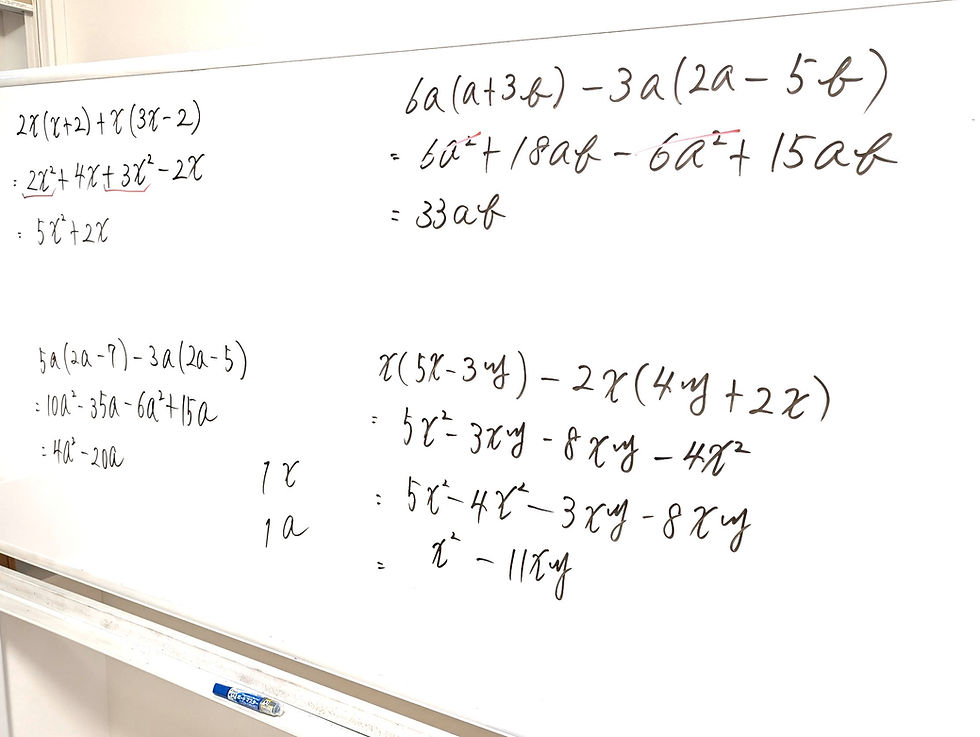 2x(x+2)+x(3x-2)
= 2x²+4x+3x²-2x
= 5x²+2x
6a(a+3b)-3a(2a-5b)
= 6a²+18ab-6a²+15ab
= 33ab
5a(2a-7)-3a(2a-5)
=10a²-35a-6a²+15a
=4a²-20a
1x
1a
x(5x-3y)-2x(4y+2x)
= 5x²-3xy-8xy-4x²
= 5x²-4x²-3xy-8xy
= x²-11xy